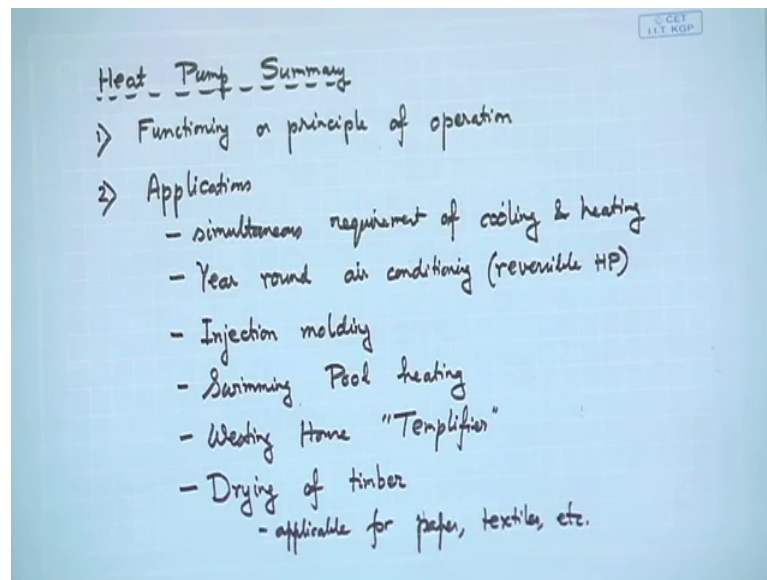 © CET
I.I.T. KGP
Heat Pump Summary
1) Functioning or principle of operation
2) Applications
- simultaneous requirement of cooling & heating
- Year round air conditioning (reversible HP)
- Injection molding
- Swimming Pool heating
- Westing House "Templifier"
- Drying of timber
- applicable for paper, textiles, etc.